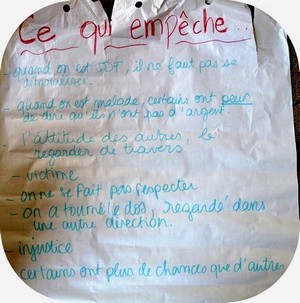 Ce qui empêche...
- quand on est SDF, il ne faut pas se
- quand on est malade, certains ont peur
de dire qu'ils n'ont pas d'argent.
- l'attitude des autres, le
regarder de travers
- victime
- on ne se fait pas respecter
- on a tourné le dos, regardé dans
une autre direction.
- injustice
certains ont plus de chances que d'autres